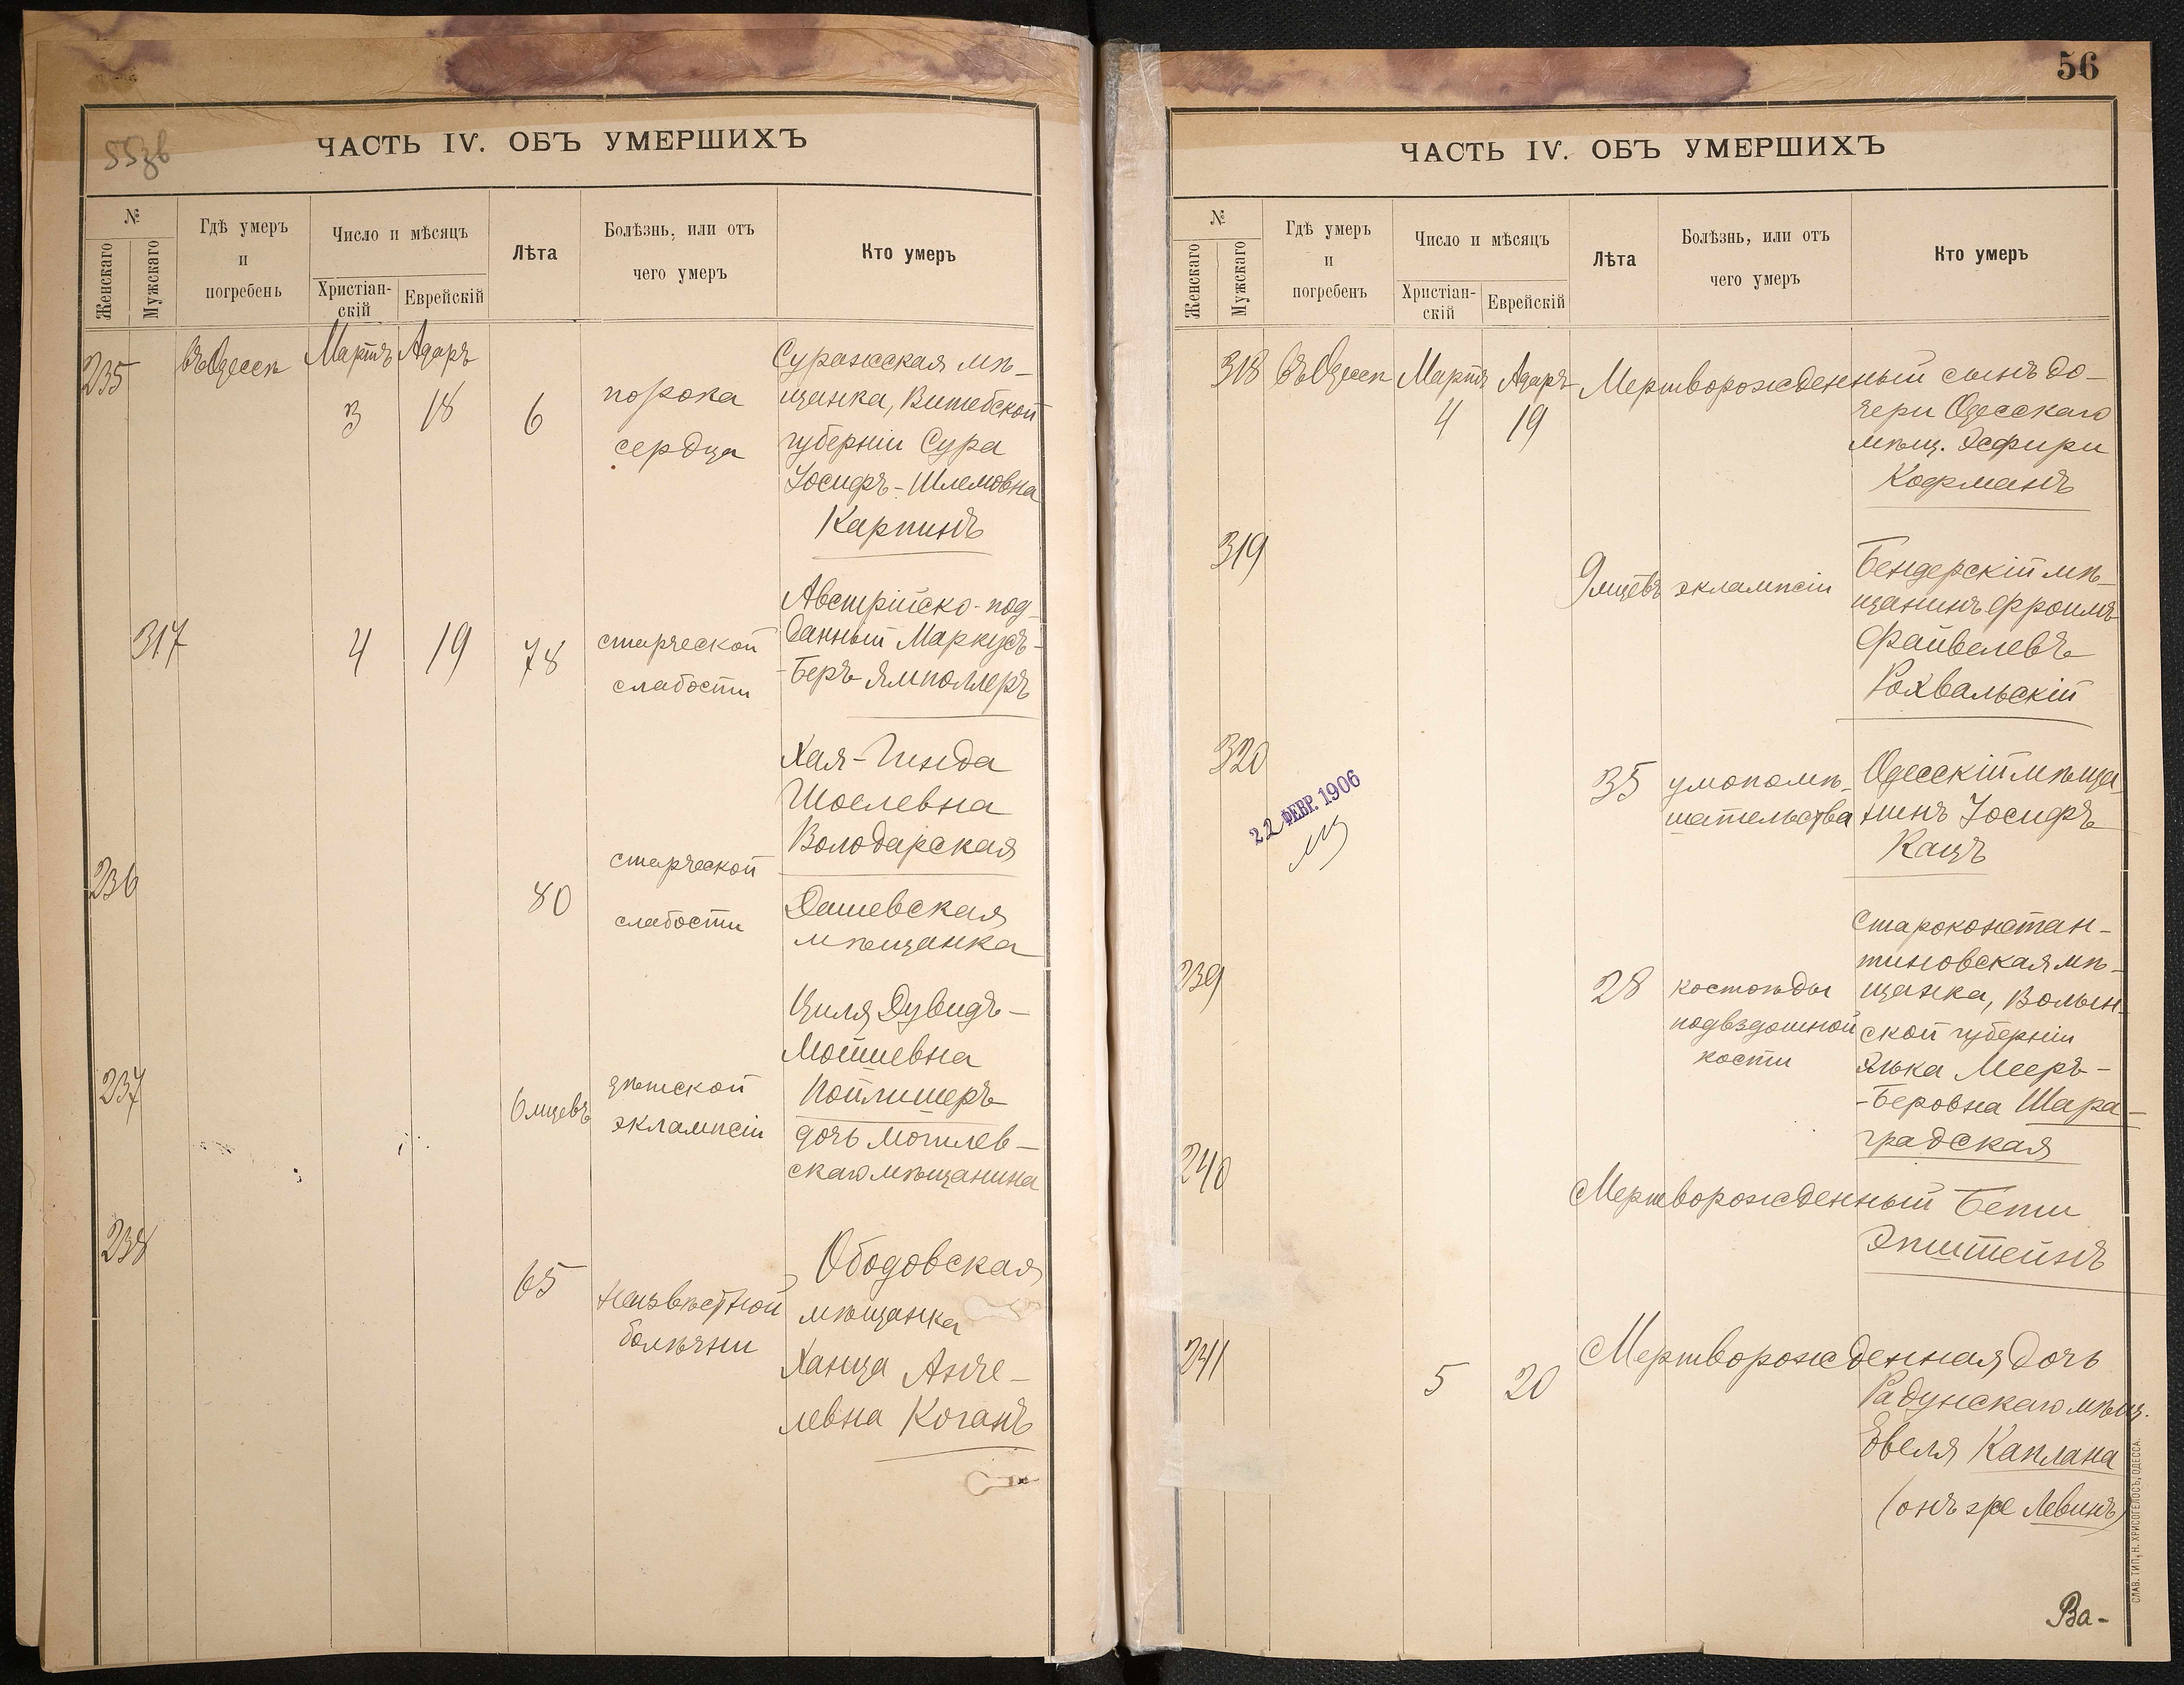 55зв
ЧАСТЬ IV. ОБЪ УМЕРШИХЪ
№
Женскаго
Мужскаго
Гдѣ умеръ
и
погребенъ
Число и мѣсяцъ
Христіан-
скій
Еврейскій
Лѣта
Болѣзнь, или отъ
чего умеръ
Кто умеръ
235
въ Одессѣ
Мартъ
Адаръ
3
18
6
порока
сердца
Суражская мѣ-
щанка, Витебской
губерніи Сура
Іосифъ-Шлемовна
Карпинъ
317
4
19
78
старческой
слабости
Австрійско-под-
данный Маркусъ-
-Беръ Ямполлеръ
236
80
старческой
слабости
Хая-Гинда
Шоелевна
Володарская
Дашевская
мѣщанка
237
6 мцевъ
дѣтской
экламписіи
Циля Дувидъ-
Мошевна
Пойлишеръ
дочь могилев-
скаго мѣщанина
238
65
неизвѣстной
болѣзни
Ободовская
мѣщанка
Ханца Анче-
левна Коганъ
56
ЧАСТЬ IV. ОБЪ УМЕРШИХЪ
№
Женскаго
Мужскаго
Гдѣ умеръ
и
погребенъ
Число и мѣсяцъ
Христіан-
скій
Еврейскій
Лѣта
Болѣзнь, или отъ
чего умеръ
Кто умеръ
318
въ Одессѣ
Мартъ
Адаръ
4
19
Мертворожденный сынъ до-
чери Одесскаго
мѣщ. Эсфири
Кофманъ
319
9 мцевъ
эклампсіи
Бендерскій мѣ-
щанинъ Фроимъ
Файвелевъ
Рохвальскій
320
22 ФЕВР. 1906
35
умопомѣ-
шательства
Одесскій мѣща-
нинъ Іосифъ
Кацъ
239
28
костоѣды
подвздошной
кости
Староконстан-
тиновская мѣ-
щанка, Волын-
ской губерніи
Элька Мееръ-
-Беровна Шара-
градская
240
Мертворожденный Бети
Эпштейнъ
241
5
20
Мертворожденная дочь
Радунскаго мѣщ.
Евеля Каплана
(онъ же Левинъ)
Ва-
СЛАВ. ТИП. Н. ХРИСОГЕЛОСЪ, ОДЕССА.